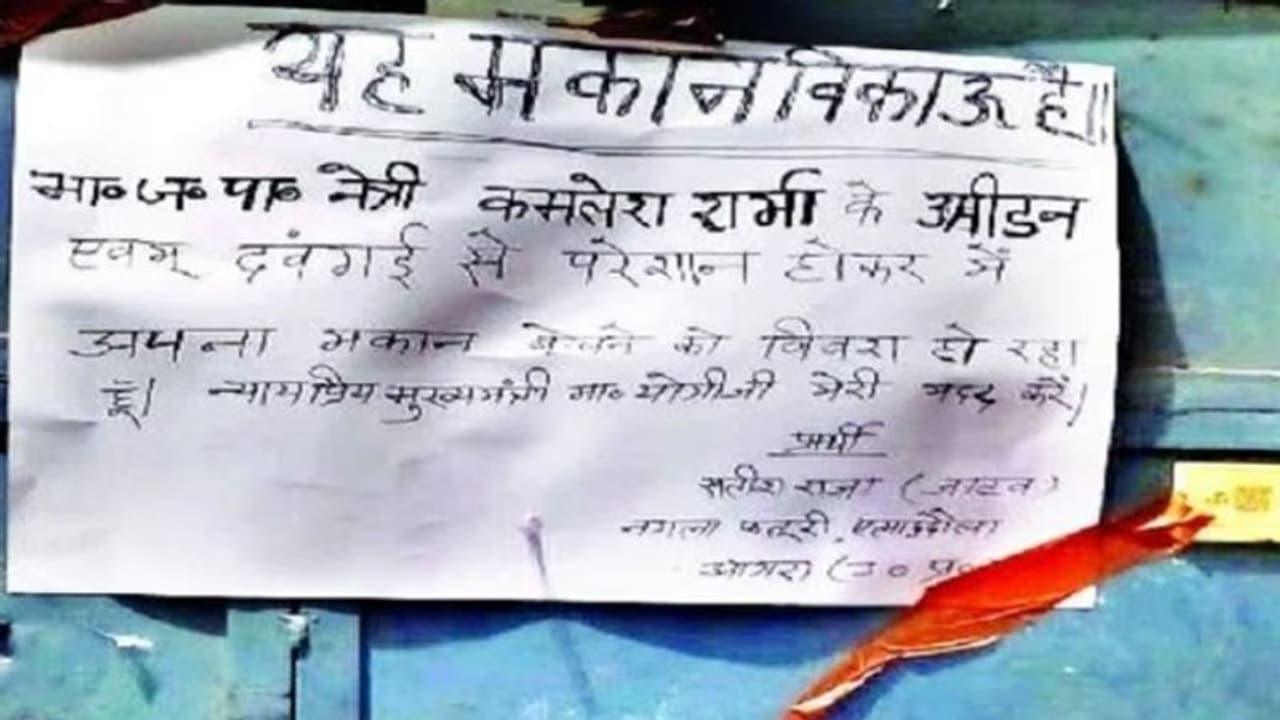 यह मकान विकाऊ है॥
भा॰ज॰पा॰ नेत्री कमलेश शर्मा के उत्पीडन
एवम् दबंगई से परेशान होकर में
अपना मकान बेचने को विवश हो रहा
हूँ। न्यायप्रिय मुख्यमंत्री मा॰ योगीजी मेरी मदद करें।
प्रार्थी
सतीश राजा (जाटव)
नगला फतूरी, एत्माउद्दौला
आगरा (उ॰ प्र॰